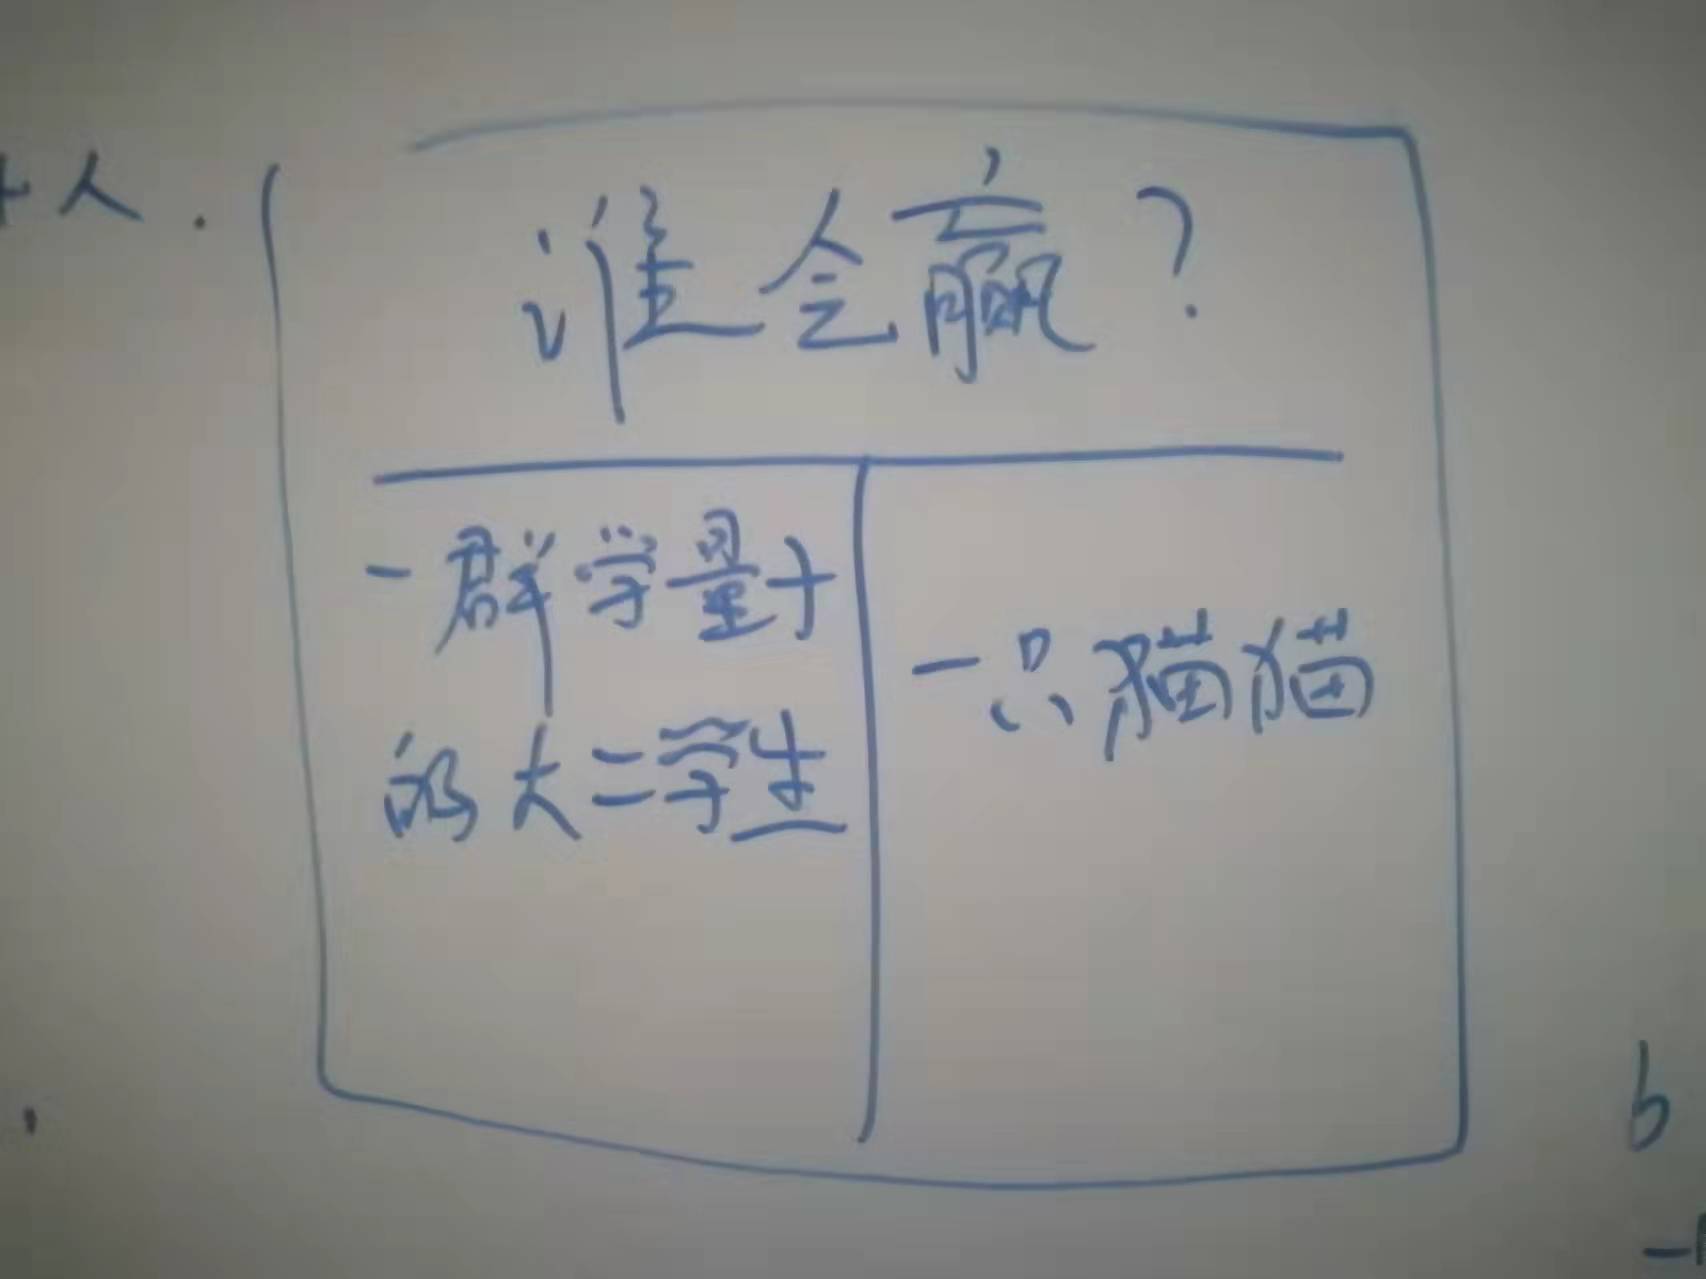 人.
谁会赢?
一群学量子
的大二学生
一只猫猫
b